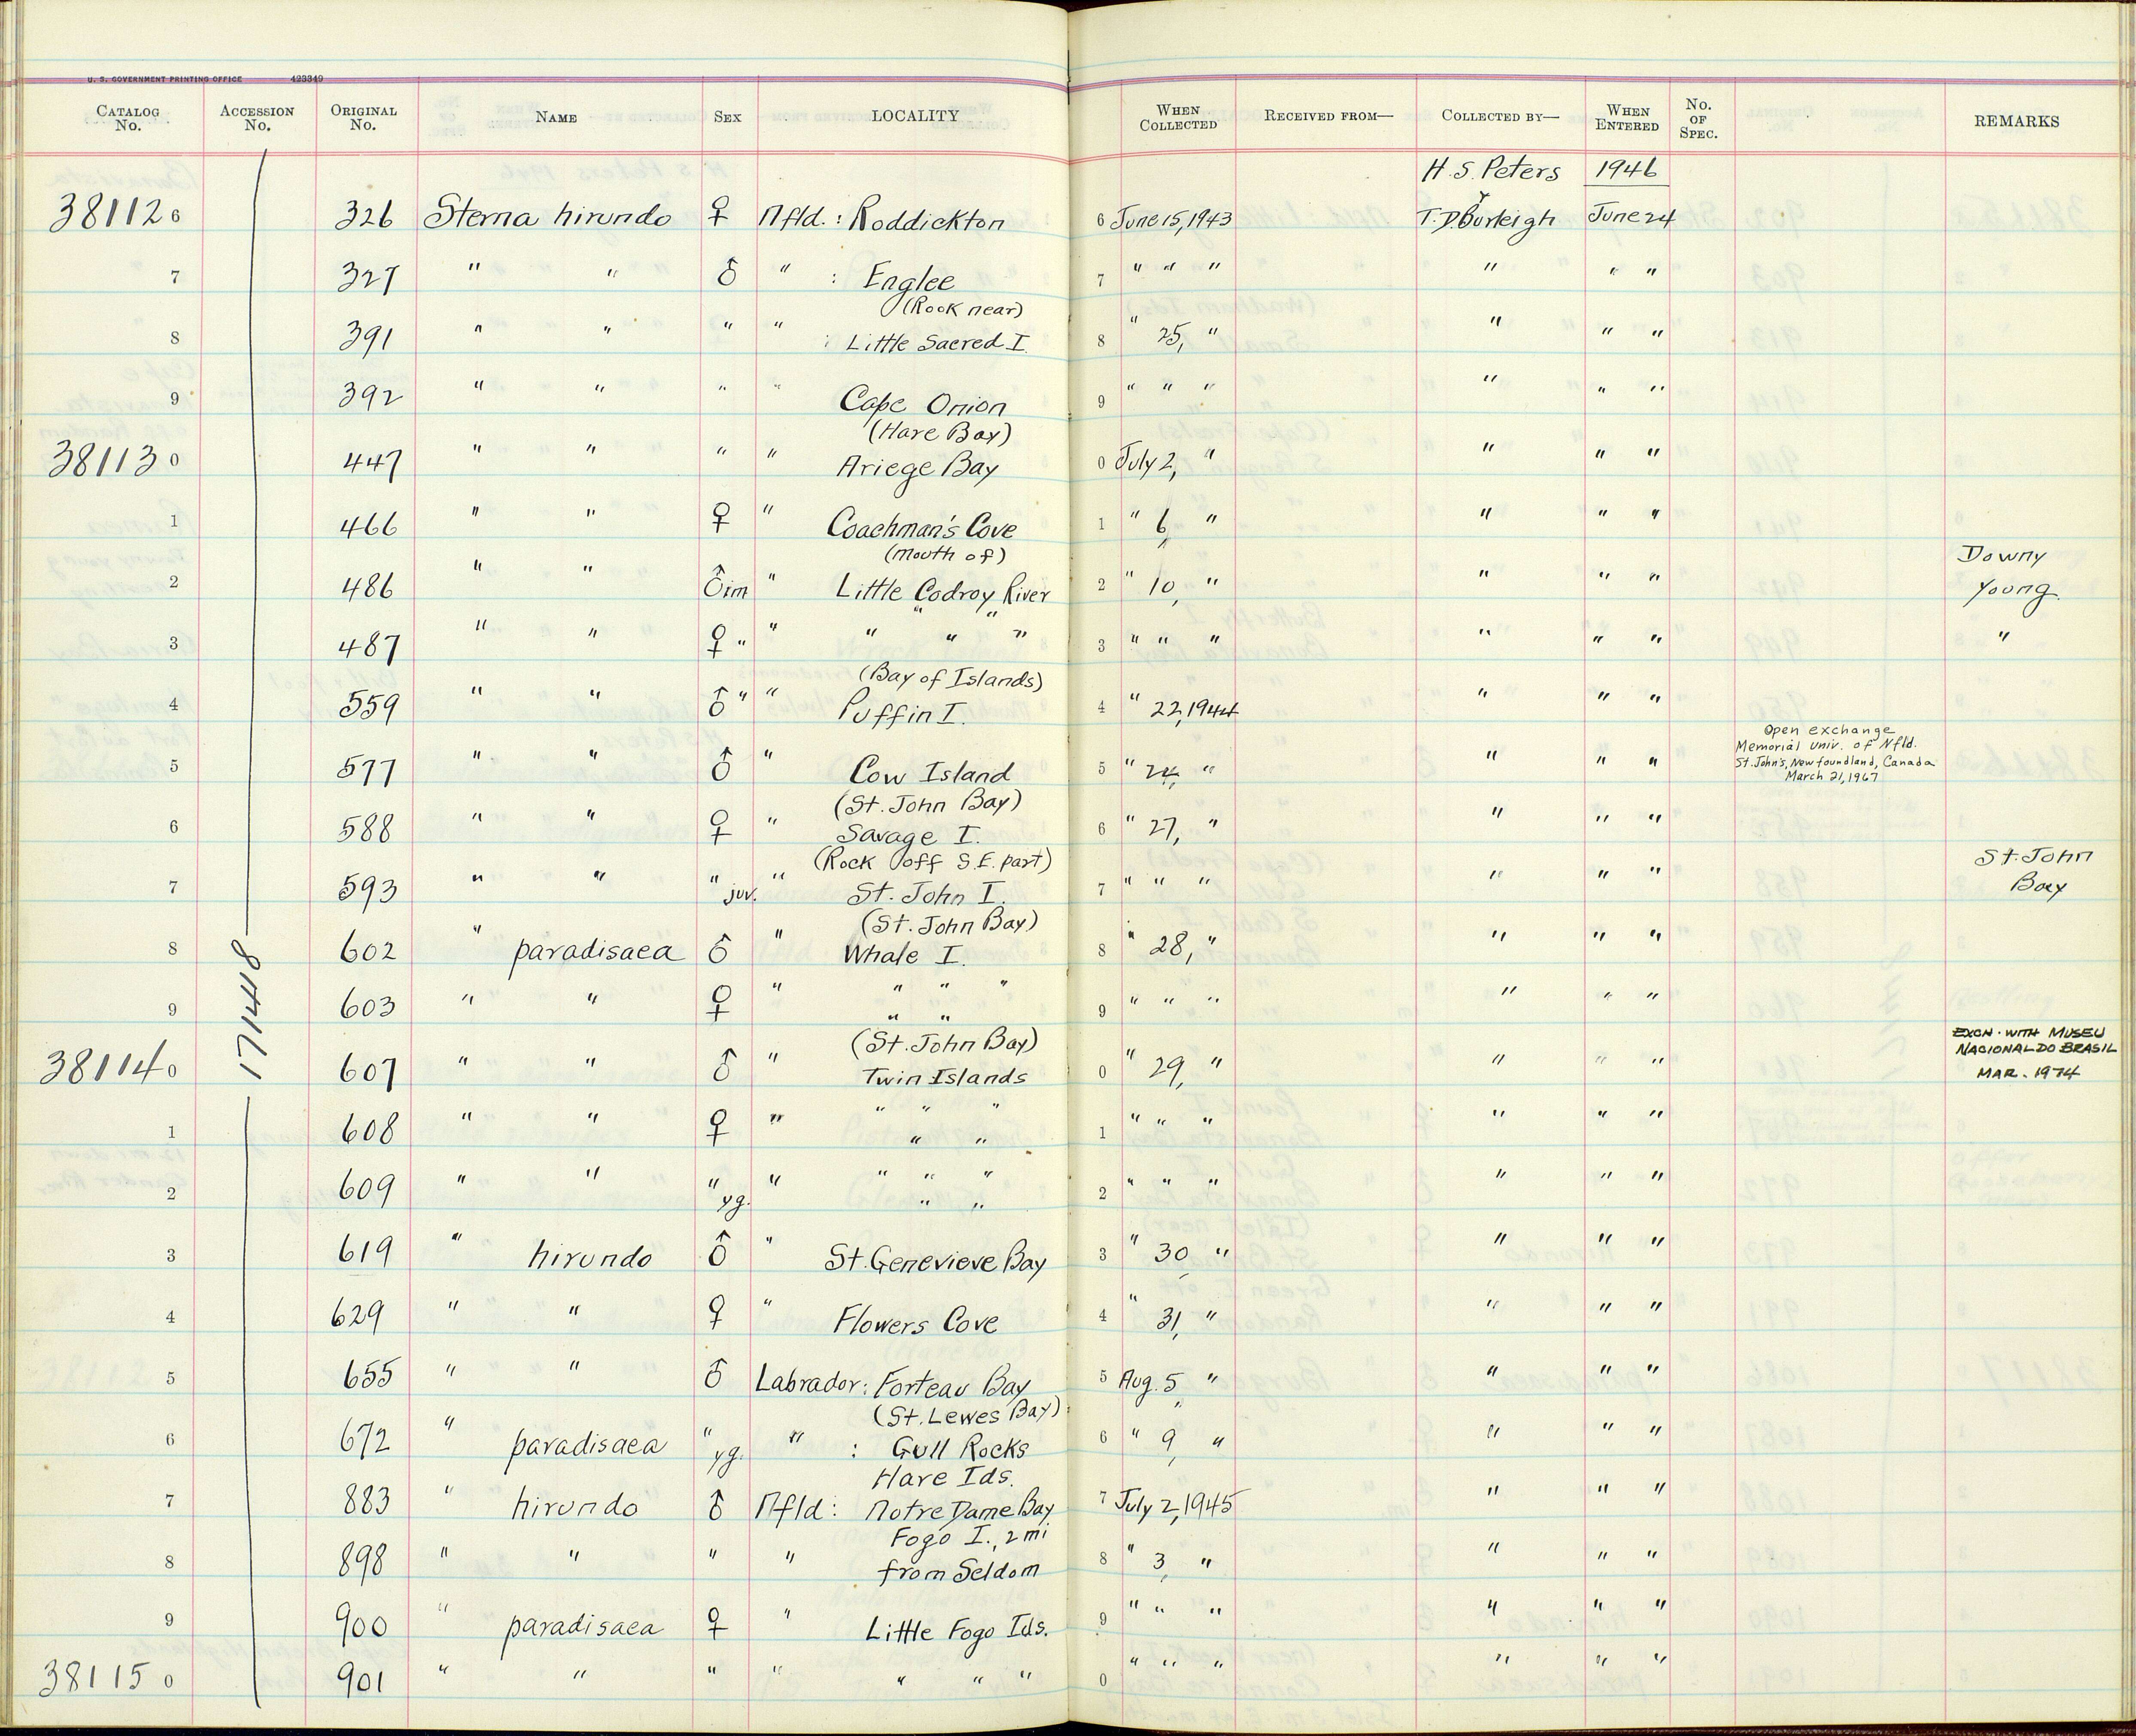 U. S. GOVERNMENT PRINTING OFFICE 423349
CATALOG No. ACCESSION No. ORIGINAL No. NAME SEX LOCALITY WHEN COLLECTED RECEIVED FROM— COLLECTED BY— WHEN ENTERED No. OF SPEC. REMARKS
H. S. Peters 1946
381126 326 Sterna hirundo ♀ Nfld.: Roddickton 6 June 15, 1943 T.D. Burleigh June 24
7 327 " " ♂ " : Englee 7 " " " " " "
(Rock near)
8 391 " " " " : Little Sacred I. 8 " 25, " " " "
9 392 " " " " Cape Onion 9 " " " " " "
(Hare Bay)
381130 447 " " " " Ariege Bay 0 July 2, " " " "
1 466 " " ♀ " Coachman's Cove 1 " 6, " " " "
(Mouth of) Downy
2 486 " " ♂im " Little Codroy River 2 " 10, " " " " Young.
" "
3 487 " " ♀ " " " " " 3 " " " " " " "
(Bay of Islands)
4 559 " " ♂ " " Puffin I. 4 " 22, 1944 " " "
Open exchange
Memorial Univ. of Nfld.
St. John's, Newfoundland, Canada
March 21, 1967
5 577 " " ♂ " Cow Island 5 " 24, " " " "
(St. John Bay)
6 588 " " ♀ " Savage I. 6 " 27, " " " "
(Rock off S.E. part) St. John
7 593 " " " juv. " St. John I. 7 " " " " " " Bay
(St. John Bay)
8 602 " paradisaea ♂ " Whale I. 8 " 28, " " " "
9 603 " " ♀ " " " " 9 " " " " " "
" "
171448
(St. John Bay) EXCH. WITH MUSEU
NACIONAL DO BRASIL
381140 607 " " ♂ " Twin Islands 0 " 29, " " " " MAR. 1974
1 608 " " ♀ " " " " 1 " " " " " "
" "
2 609 " " " yg. " " " " 2 " " " " " "
" "
3 619 " hirundo ♂ " St. Genevieve Bay 3 " 30, " " " "
4 629 " " ♀ " Flowers Cove 4 " 31, " " " "
5 655 " " ♂ Labrador: Forteau Bay 5 Aug. 5, " " " "
(St. Lewes Bay)
6 672 " paradisaea " yg. " : Gull Rocks 6 " 9, " " " "
Hare Ids.
7 883 " hirundo ♂ Nfld: Notre Dame Bay 7 July 2, 1945 " " "
Fogo I., 2 mi
8 898 " " " " from Seldom 8 " 3, " " " "
9 900 " paradisaea ♀ " Little Fogo Ids. 9 " " " " " "
381150 901 " " " " " " " 0 " " " " " "